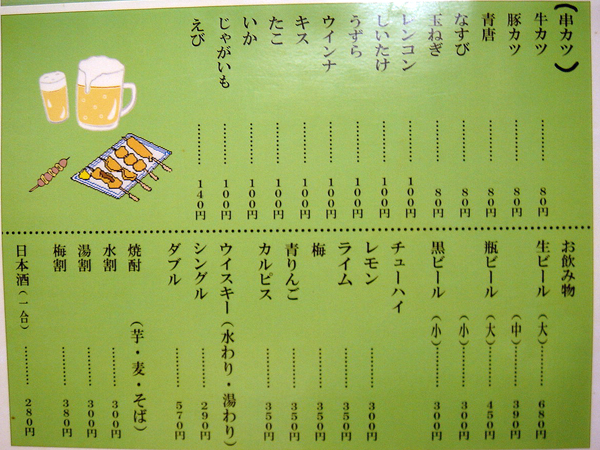 （串カツ）
牛カツ………80円
豚カツ………80円
青唐………80円
なすび………80円
玉ねぎ………80円
レンコン………100円
しいたけ………100円
うずら………100円
ウインナ………100円
キス………100円
たこ………100円
いか………100円
じゃがいも………100円
えび………140円
お飲み物
生ビール（大）………680円
（中）………390円
瓶ビール（大）………450円
（小）………300円
黒ビール（小）………300円
チューハイ
レモン………300円
ライム………350円
梅………350円
青りんご………350円
カルピス………350円
ウイスキー（水わり・湯わり）
シングル………290円
ダブル………570円
焼酎（芋・麦・そば）
水割………300円
湯割………300円
梅割………380円
日本酒（一合）………280円